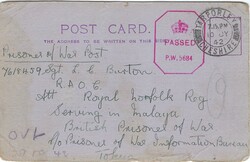 POST CARD.
THE ADDRESS TO BE WRITTEN ON THIS SIDE
PASSED
P.W. 5684
TARPORLEY
CHESHIRE
Prisoner of War Post
7618439 Sgt. L C Burton
R.A.O.C.
Att Royal Norfolk Reg
Serving in Malaya
British Prisoner of War
c/o P of War Information Bureau
Tokyo